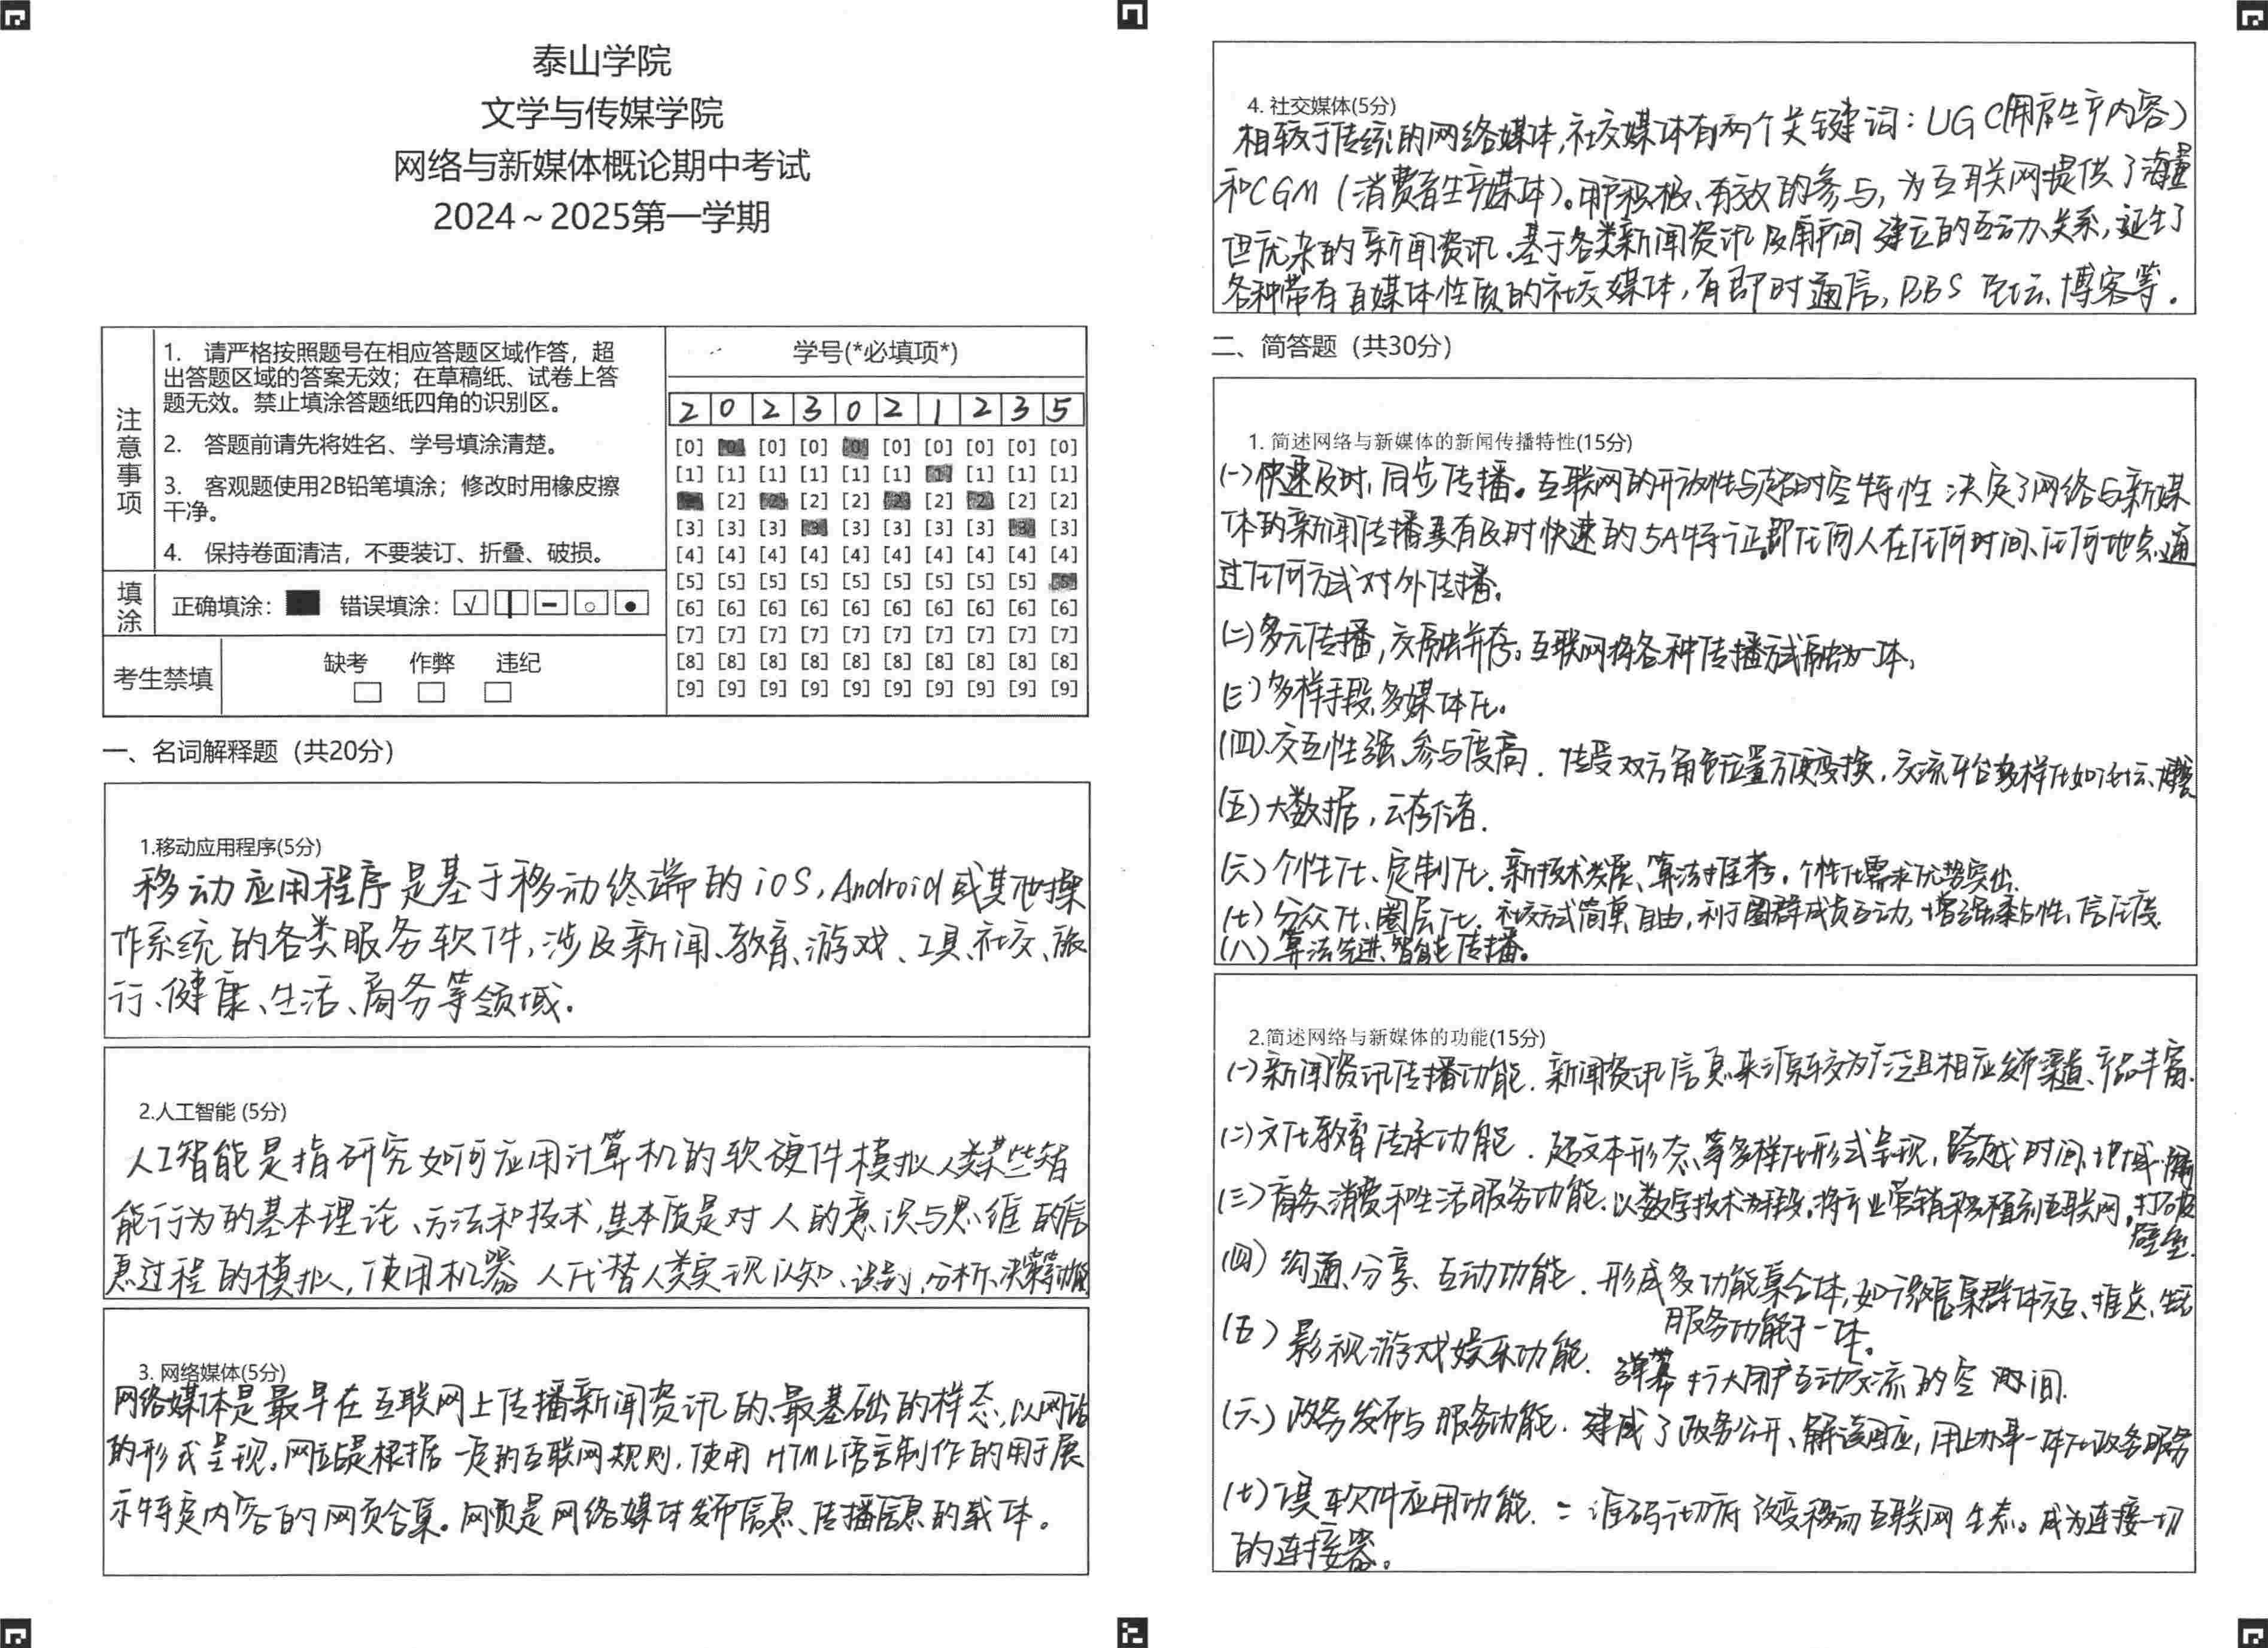 泰山学院
文学与传媒学院
网络与新媒体概论期中考试
2024～2025第一学期
注意事项
1. 请严格按照题号在相应答题区域作答，超
出答题区域的答案无效；在草稿纸、试卷上答
题无效。禁止填涂答题纸四角的识别区。
2. 答题前请先将姓名、学号填涂清楚。
3. 客观题使用2B铅笔填涂；修改时用橡皮擦
干净。
4. 保持卷面清洁，不要装订、折叠、破损。
填涂
正确填涂： 错误填涂：
考生禁填
缺考 作弊 违纪
学号(*必填项*)
2 0 2 3 0 2 1 2 3 5
[0] [0] [0] [0] [0] [0] [0] [0] [0] [0]
[1] [1] [1] [1] [1] [1] [1] [1] [1] [1]
[2] [2] [2] [2] [2] [2] [2] [2] [2]
[3] [3] [3] [3] [3] [3] [3] [3] [3] [3]
[4] [4] [4] [4] [4] [4] [4] [4] [4] [4]
[5] [5] [5] [5] [5] [5] [5] [5] [5] [5]
[6] [6] [6] [6] [6] [6] [6] [6] [6] [6]
[7] [7] [7] [7] [7] [7] [7] [7] [7] [7]
[8] [8] [8] [8] [8] [8] [8] [8] [8] [8]
[9] [9] [9] [9] [9] [9] [9] [9] [9] [9]
一、名词解释题（共20分）
1.移动应用程序(5分)
移动应用程序是基于移动终端的iOS,Android或其他操
作系统的各类服务软件,涉及新闻、教育、游戏、工具、社交、旅
行、健康、生活、商务等领域.
2.人工智能 (5分)
人工智能是指研究如何应用计算机的软硬件模拟人类某些智
能行为的基本理论、方法和技术,其本质是对人的意识与思维的信
息过程的模拟,使用机器人代替人类实现认知、识别,分析、决策等功能
3. 网络媒体(5分)
网络媒体是最早在互联网上传播新闻资讯的、最基础的样态,以网站
的形式呈现。网站是根据一定的互联网规则,使用HTML语言制作的用于展
示特定内容的网页合集。网页是网络媒体发布信息、传播信息的载体。
4. 社交媒体(5分)
相较于传统的网络媒体,社交媒体有两个关键词：UGC(用户生产内容)
和CGM（消费者生产媒体)。用户积极、有效的参与,为互联网提供了海量
但庞杂的新闻资讯.基于各类新闻资讯及用户间建立的互动关系,诞生了
各种带有自媒体性质的社交媒体,有即时通信,BBS论坛、博客等.
二、简答题（共30分）
1. 简述网络与新媒体的新闻传播特性(15分)
(一)快速及时,同步传播。互联网的开放性与超时空特性决定了网络与新媒
体的新闻传播要有及时快速的5A特征即任何人在任何时间、任何地点通
过任何方式对外传播.
(二)多元传播,交融并存。互联网将各种传播方式融为一体,
(三)多样手段、多媒体化。
(四).交互性强、参与度高. 传受双方角色位置方便变换,交流平台多样化如论坛、博客
(五)大数据,云存储.
(六)个性化、定制化.新技术发展、算法推荐,个性化需求优势突出.
(七)分众化、圈层化.社交方式简单、自由,利于圈群成员互动,增强黏性、信任度.
(八)算法先进、智能传播。
2.简述网络与新媒体的功能(15分)
(一)新闻资讯传播功能.新闻资讯信息来源较为广泛且相应发布渠道、产品丰富.
(二)文化教育传承功能.超文本形态等多样化形式呈现,跨越时间、地域
(三)商务、消费和生活服务功能.以数字技术为手段,将产业营销移植到互联网,打破
壁垒.
(四)沟通、分享、互动功能.形成多功能集合体,如微信集群体交互、推送、生活
服务功能于一体。
(五)影视游戏娱乐功能.弹幕扩大用户互动交流的空间.
(六)政务发布与服务功能.建成了政务公开、解读回应,网上办事一体化政务服务
(七)硬软件应用功能.二维码功能改变移动互联网生态。成为连接一切
的连接器。